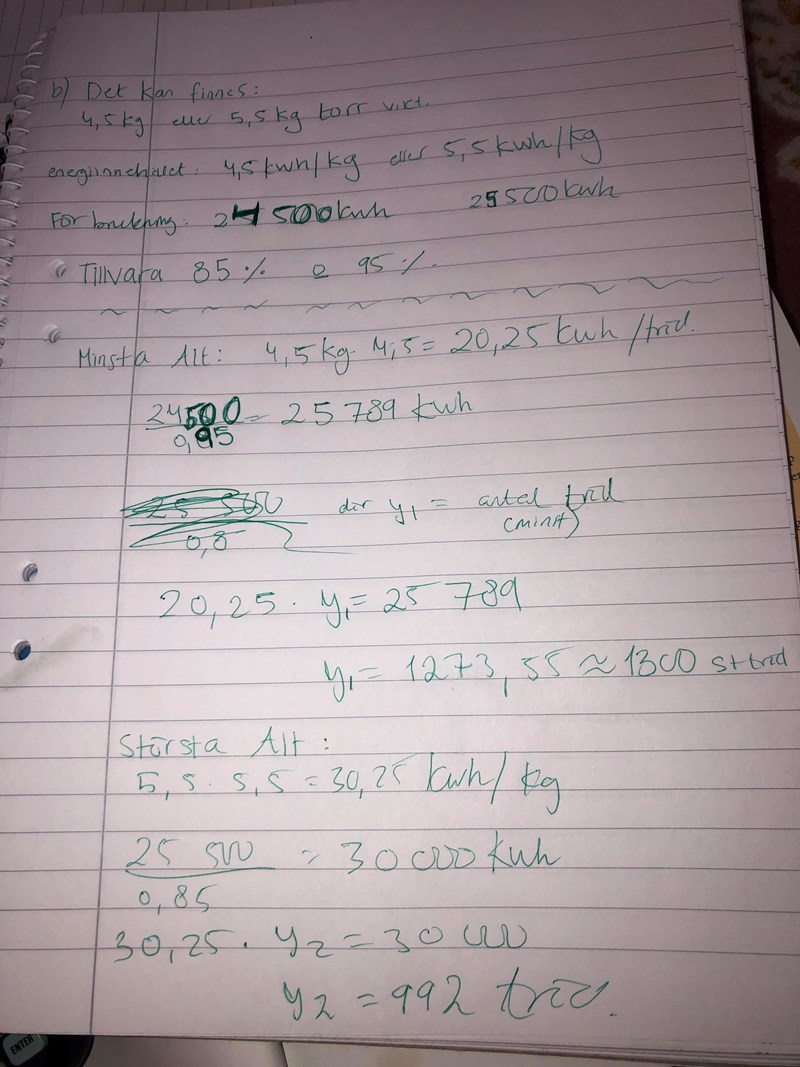 b) Det kan finnes:
4,5 kg eller 5,5 kg torr vikt.
energiinnehållet: 4,5 kwh/kg eller 5,5 kwh/kg
Förbrukning: 24 500 kwh 25 500 kwh
Tillvara 85 % o 95 %.
Minsta Alt: 4,5 kg · 4,5 = 20,25 kwh /träd.
24500 / 0,95 = 25 789 kwh
där y₁ = antal träd
(minst)
20,25 · y₁ = 25 789
y₁ = 1273,55 ≈ 1300 st träd
Största Alt :
5,5 · 5,5 = 30,25 kwh/ kg
25 500 / 0,85 = 30 000 kwh
30,25 · y₂ = 30 000
y₂ = 992 träd.
ENTER